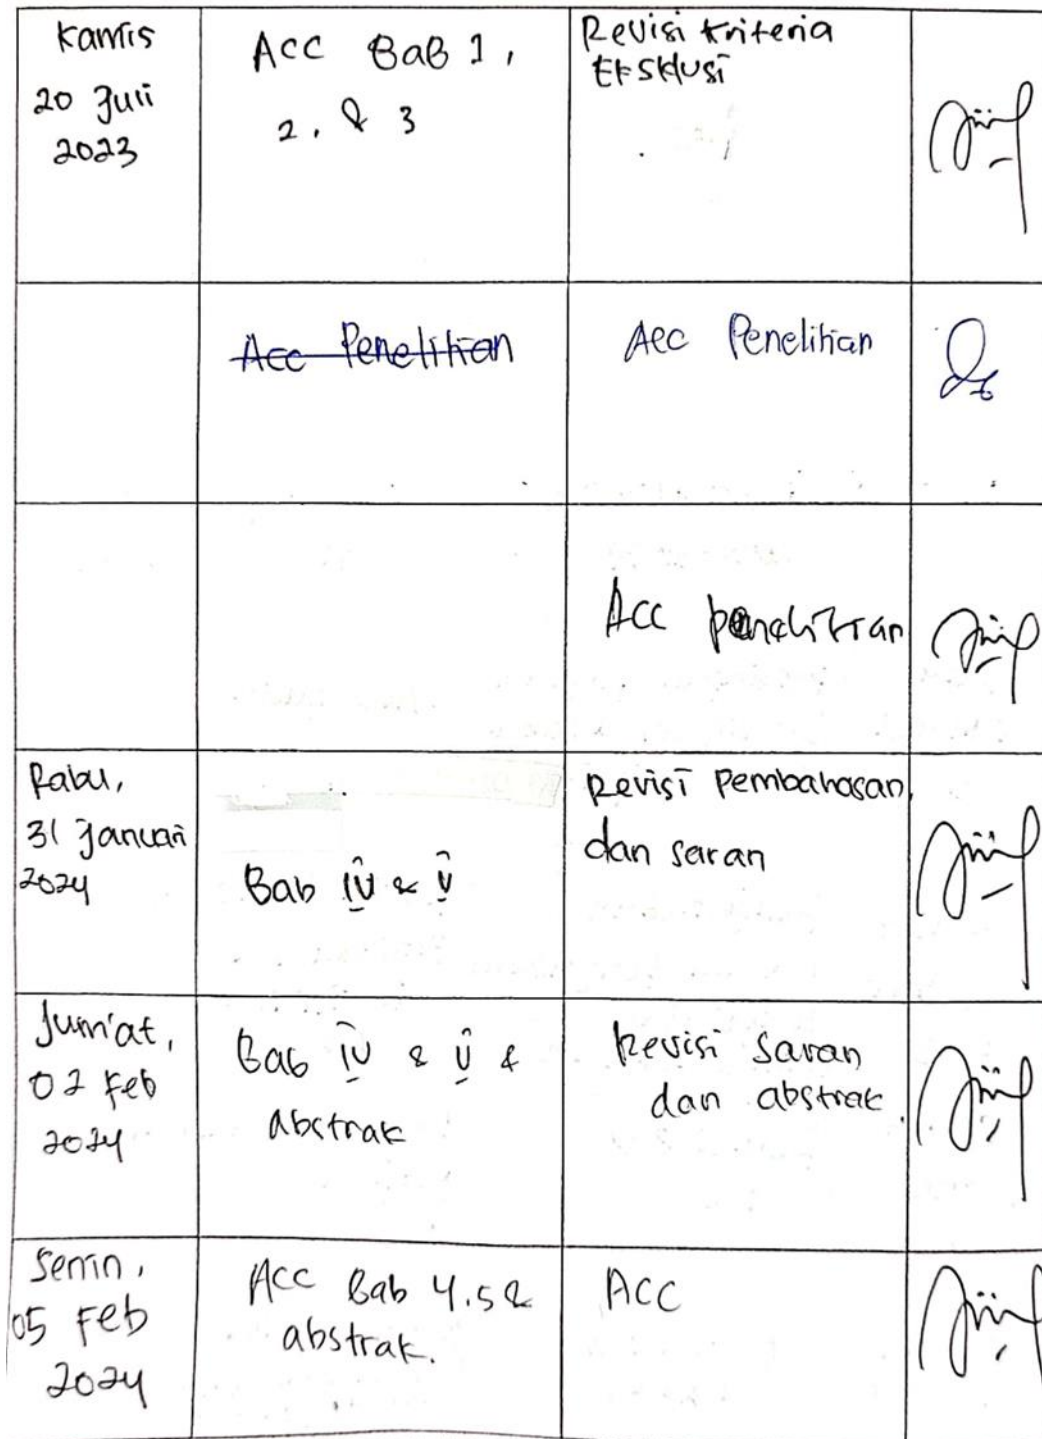 Kamis
20 Juli
2023
ACC BaB 1,
2, & 3
Revisi Kriteria
Eksklusi
Acc Penelitian
Acc Penelitian
Acc penelitian
Rabu,
31 Januari
2024
Bab IV & V
Revisi Pembahasan,
dan saran
Jum'at,
02 Feb
2024
Bab IV & V &
abstrak
Revisi Saran
dan abstrak.
Senin,
05 Feb
2024
ACC Bab 4.5 &
abstrak.
ACC